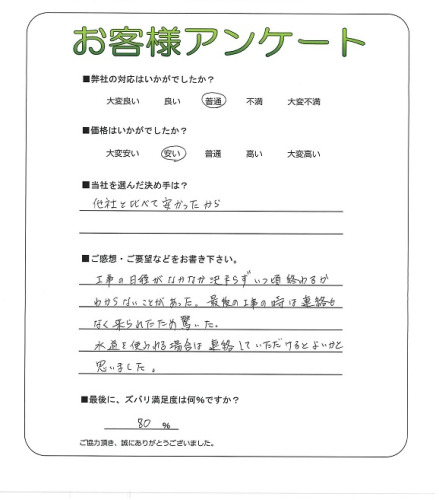 お客様アンケート
■弊社の対応はいかがでしたか？
大変良い 良い 普通 不満 大変不満
■価格はいかがでしたか？
大変安い 安い 普通 高い 大変高い
■当社を選んだ決め手は？
他社と比べて安かったから
■ご感想・ご要望などをお書き下さい。
工事の日程がなかなか決まらずいつ頃終わるか
わからないことがあった。最後の工事の時は連絡も
なく来られたため驚いた。
水道を使われる場合は連絡していただけるとよいかと
思いました。
■最後に、ズバリ満足度は何％ですか？
80 ％
ご協力頂き、誠にありがとうございました。